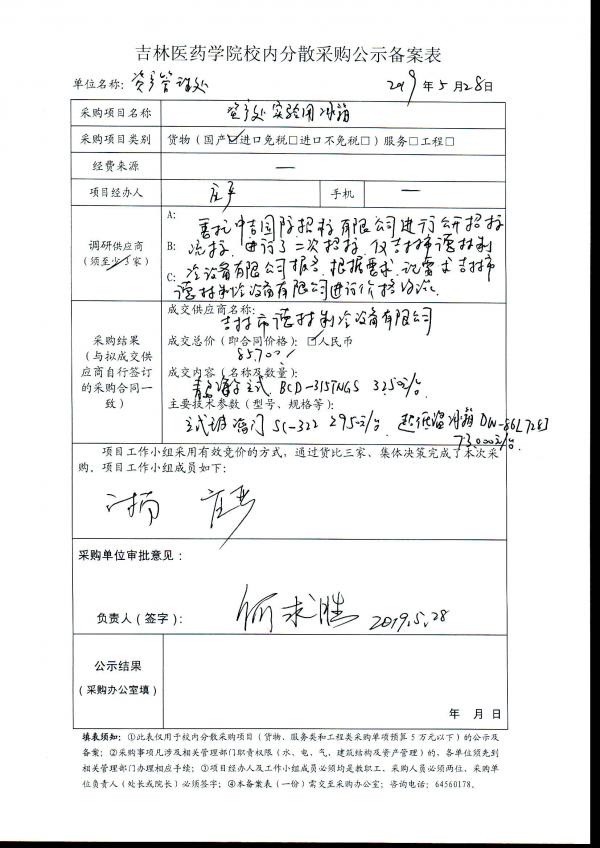 吉林医药学院校内分散采购公示备案表
单位名称：资产管理处 2019年5月28日
采购项目名称 资产处实验用冰箱
采购项目类别 货物（国产☑进口免税□进口不免税□）服务□工程□
经费来源 —
项目经办人 手机 —
调研供应商
（须至少3家）
A：
B：
C：
委托中吉国际招标有限公司进行公开招标
流标，进行了二次招标，仅吉林市德林制
冷设备有限公司报名，根据要求，
德林制冷设备有限公司进行价格
采购结果
（与拟成交供
应商自行签订
的采购合同一
致）
成交供应商名称：
吉林市德林制冷设备有限公司
成交总价（即合同价格）：☑人民币
85,700
成交内容（名称及数量）：
BCD-315TNGS 3250元/台
主要技术参数（型号、规格等）：
SC-322 2950元/台 超低温冰箱 DW-86L728J
73,000元/台
项目工作小组采用有效竞价的方式，通过货比三家、集体决策完成了本次采
购。项目工作小组成员如下：
采购单位审批意见：
负责人（签字）： 2019.5.28
公示结果
（采购办公室填）
年 月 日
填表须知：①此表仅用于校内分散采购项目（货物、服务类和工程类采购单项预算5万元以下）的公示及
备案；②采购事项凡涉及相关管理部门职责权限（水、电、气、建筑结构及资产管理）的，各单位须先到
相关管理部门办理相应手续；③项目经办人及工作小组成员必须均是教职工，采购人员必须两位，采购单
位负责人（处长或院长）必须签字；④本备案表（一份）需交至采购办公室；咨询电话：64560178。